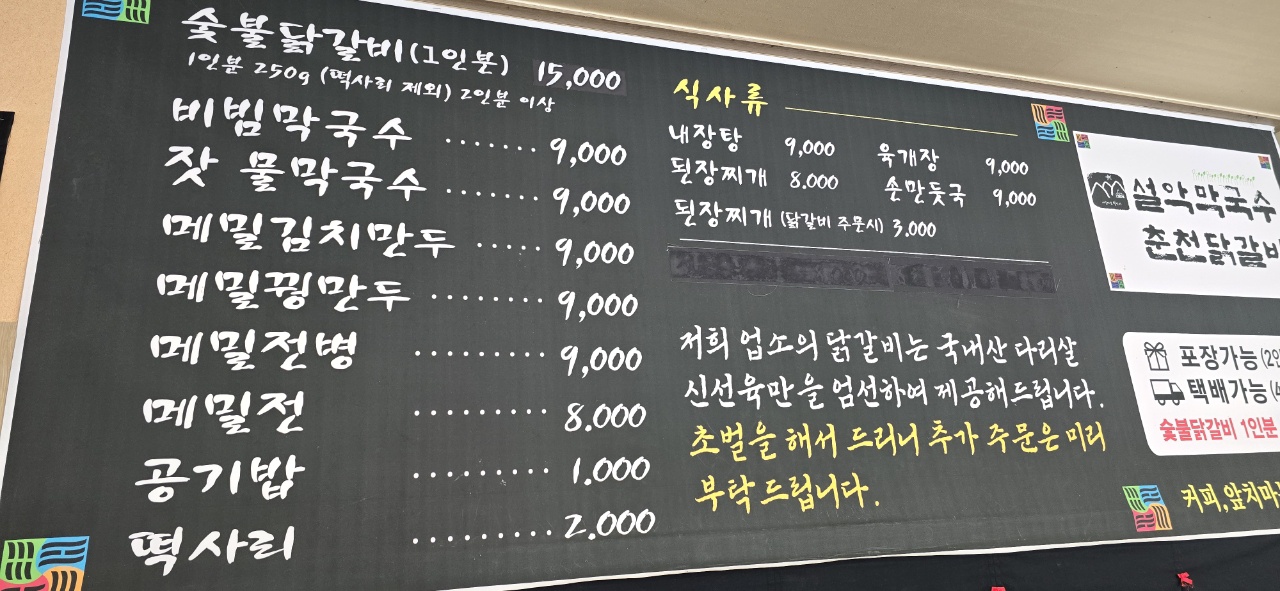 숯불닭갈비(1인분) 15,000
1인분 250g (떡사리 제외) 2인분 이상
비빔막국수 ······· 9,000
잣 물막국수 ······ 9,000
메밀김치만두 ····· 9,000
메밀꿩만두 ········ 9,000
메밀전병 ·········· 9,000
메밀전 ·········· 8.000
공기밥 ·········· 1.000
떡사리 ·········· 2.000
식사류
내장탕 9,000 육개장 9,000
된장찌개 8.000 손만둣국 9,000
된장찌개 (닭갈비 주문시) 3.000
저희 업소의 닭갈비는 국내산 다리살
신선육만을 엄선하여 제공해드립니다.
초벌을 해서 드리니 추가 주문은 미리
부탁 드립니다.
설악막국수
춘천닭갈비
포장가능(2인
택배가능(
숯불닭갈비 1인분
커피,앞치마